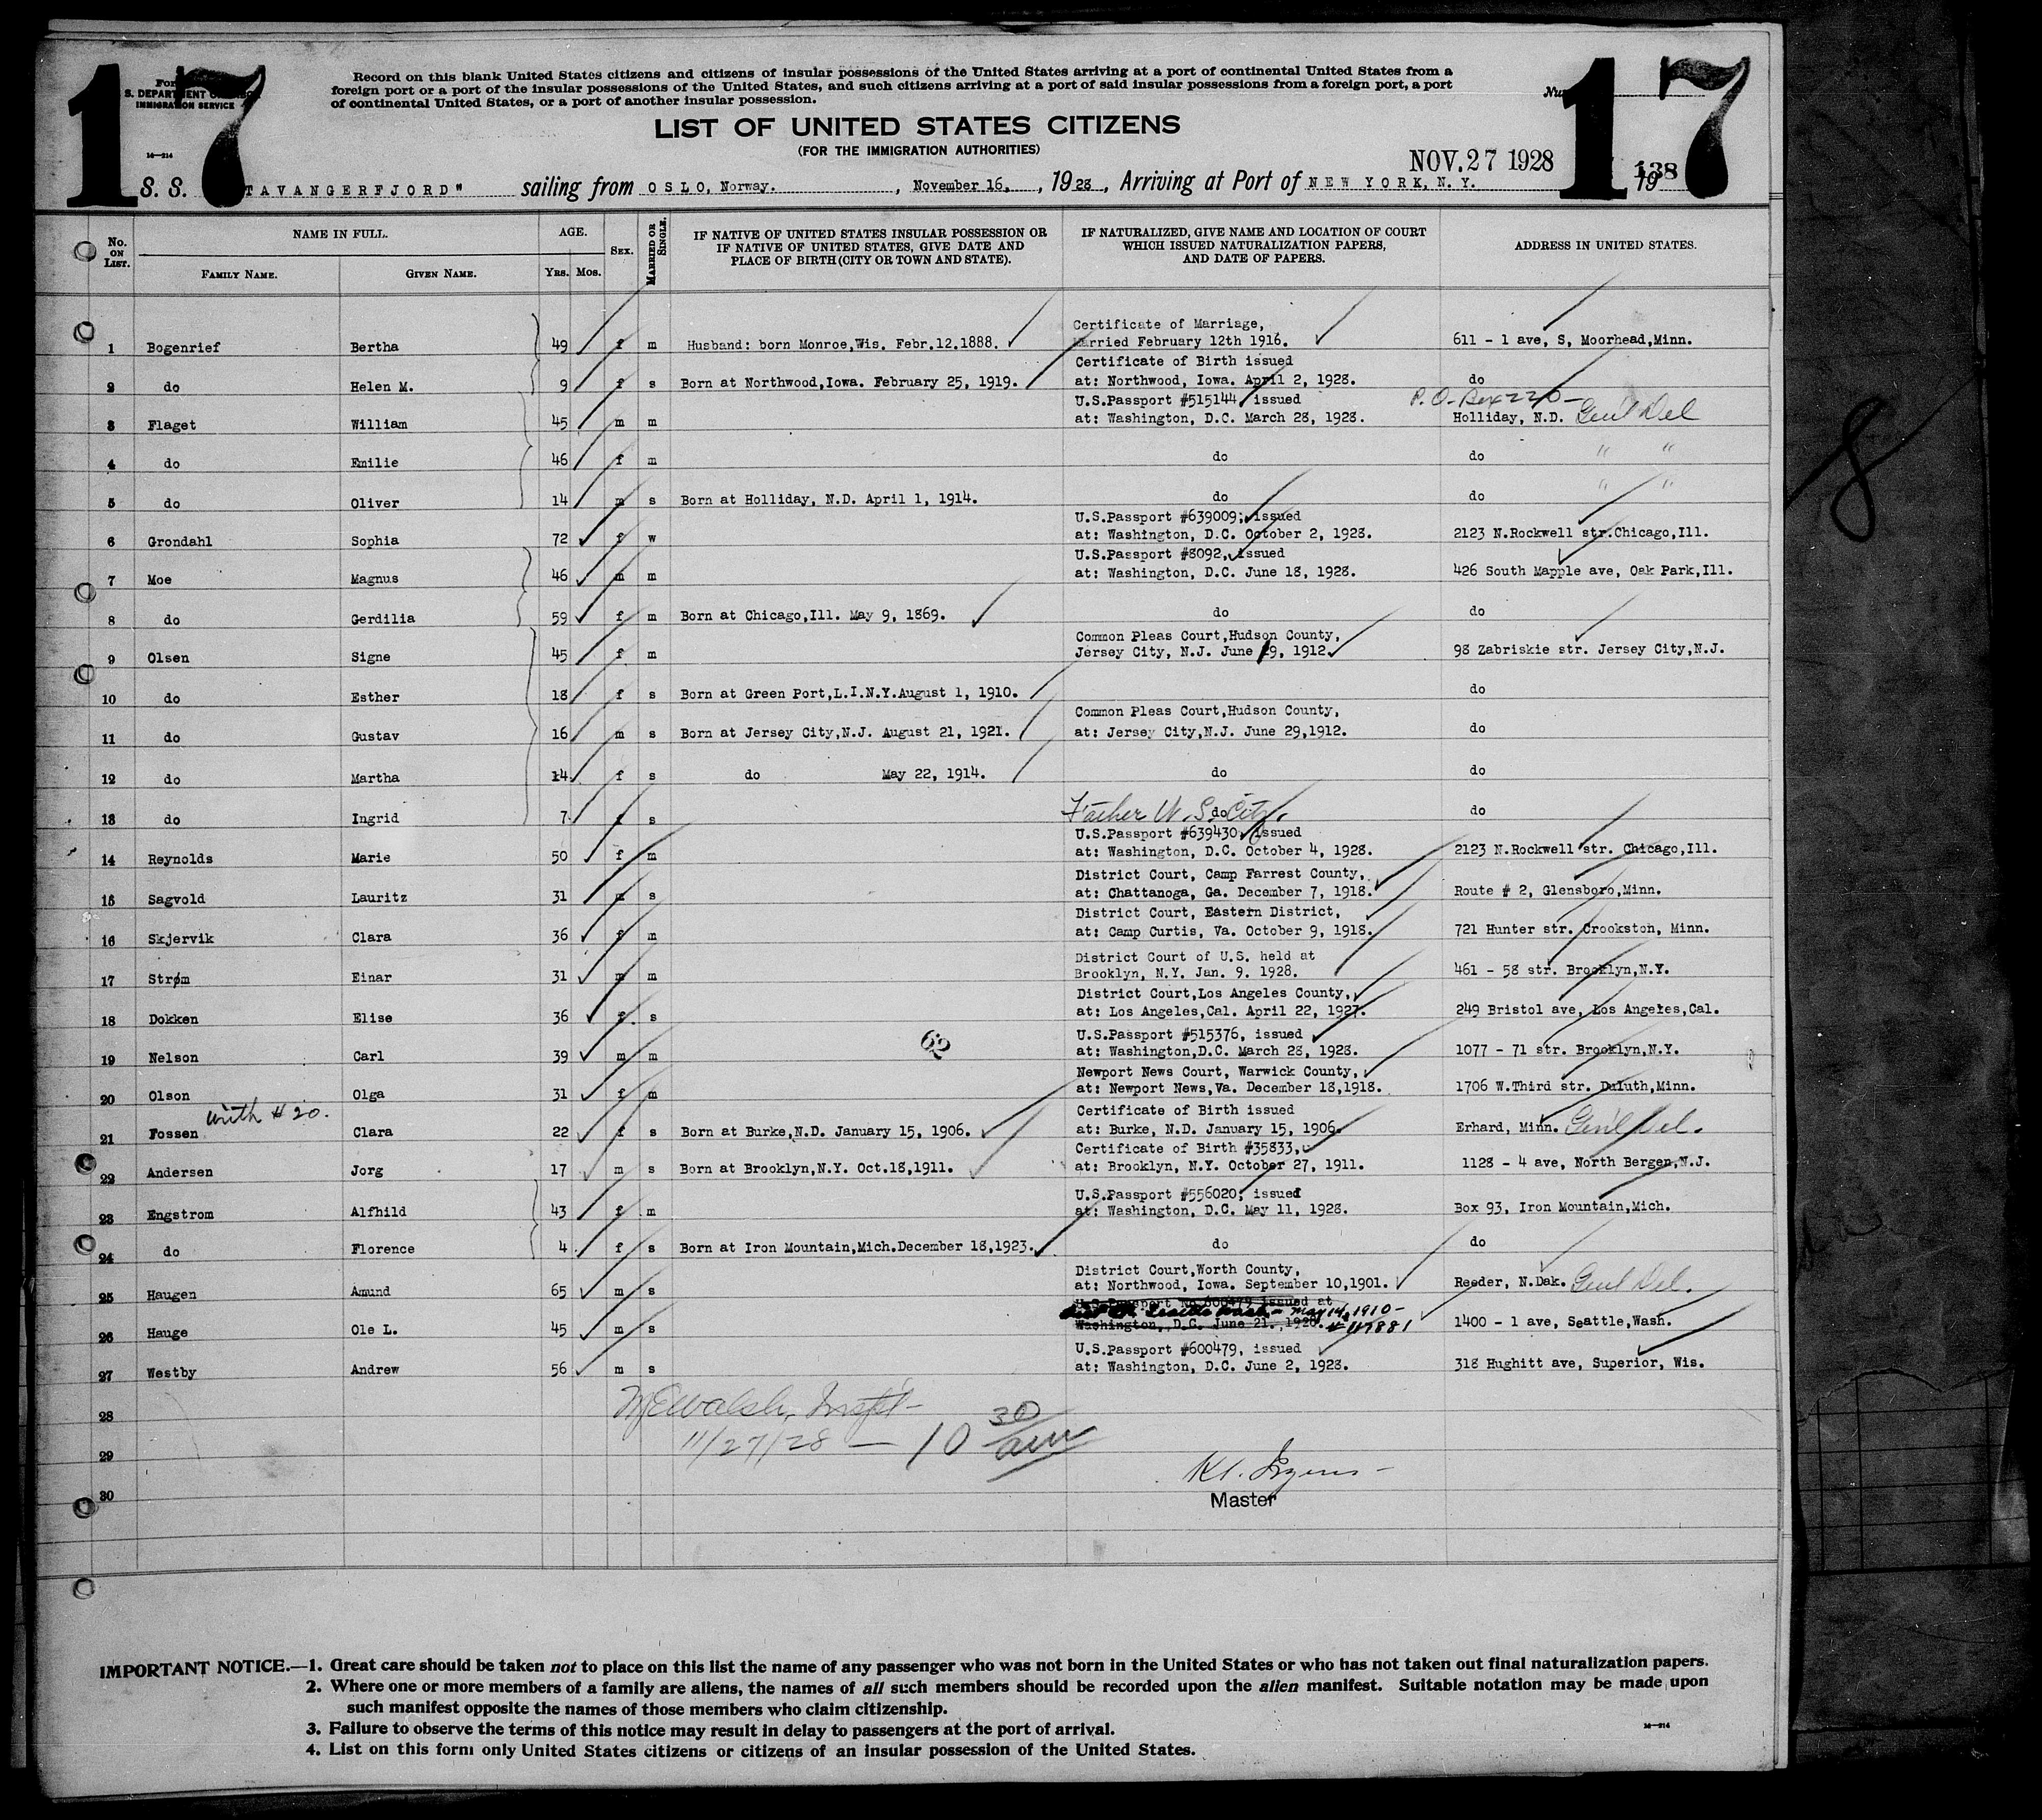 17
17
Record on this blank United States citizens and citizens of insular possessions of the United States arriving at a port of continental United States from a
foreign port or a port of the insular possessions of the United States, and such citizens arriving at a port of said insular possessions from a foreign port, a port
of continental United States, or a port of another insular possession.
IMMIGRATION SERVICE
LIST OF UNITED STATES CITIZENS
(FOR THE IMMIGRATION AUTHORITIES)
14—214
NOV. 27 1928
138
S. S. TAVANGERFJORD" sailing from OSLO, Norway. , November 16, , 1928, Arriving at Port of NEW YORK, N. Y. 19
No. ON LIST. NAME IN FULL. AGE. SEX. MARRIED OR SINGLE. IF NATIVE OF UNITED STATES INSULAR POSSESSION OR IF NATIVE OF UNITED STATES, GIVE DATE AND PLACE OF BIRTH (CITY OR TOWN AND STATE). IF NATURALIZED, GIVE NAME AND LOCATION OF COURT WHICH ISSUED NATURALIZATION PAPERS, AND DATE OF PAPERS. ADDRESS IN UNITED STATES.
FAMILY NAME. GIVEN NAME. YRS. MOS.
Certificate of Marriage,
1 Bogenrief Bertha 49 f m Husband: born Monroe,Wis. Febr.12.1888. Married February 12th 1916. 611 - 1 ave, S, Moorhead,Minn.
Certificate of Birth issued
2 do Helen M. 9 f s Born at Northwood,Iowa. February 25, 1919. at: Northwood, Iowa. April 2, 1928. do
U.S.Passport #515144, issued P.O-Box 220-
3 Flaget William 45 m m at: Washington, D.C. March 28, 1928. Holliday, N.D. Genl Del
4 do Emilie 46 f m do do " "
5 do Oliver 14 m s Born at Holliday, N.D. April 1, 1914. do do " "
U.S.Passport #639009; issued
6 Grondahl Sophia 72 f w at: Washington, D.C. October 2, 1928. 2123 N.Rockwell str.Chicago,Ill.
U.S.Passport #8092, issued
7 Moe Magnus 46 m m at: Washington, D.C. June 18, 1928. 426 South Mapple ave, Oak Park,Ill.
8 do Gerdilia 59 f m Born at Chicago,Ill. May 9, 1869. do do
Common Pleas Court,Hudson County,
9 Olsen Signe 45 f m Jersey City, N.J. June 19, 1912. 98 Zabriskie str. Jersey City,N.J.
10 do Esther 18 f s Born at Green Port,L.I.N.Y.August 1, 1910. do
Common Pleas Court,Hudson County,
11 do Gustav 16 m s Born at Jersey City,N.J. August 21, 1921. at: Jersey City,N.J. June 29,1912. do
12 do Martha 14 f s do May 22, 1914. do do
13 do Ingrid 7 f s Father U.S. do City. do
U.S.Passport #639430, issued
14 Reynolds Marie 50 f m at: Washington, D.C. October 4, 1928. 2123 N.Rockwell str. Chicago,Ill.
District Court, Camp Farrest County,
15 Sagvold Lauritz 31 m s at: Chattanoga, Ga. December 7, 1918. Route # 2, Glensboro,Minn.
District Court, Eastern District,
16 Skjervik Clara 36 f m at: Camp Curtis, Va. October 9, 1918. 721 Hunter str. Crookston, Minn.
District Court of U.S. held at
17 Strøm Einar 31 m m Brooklyn, N.Y. Jan. 9. 1928. 461 - 58 str. Brooklyn,N.Y.
District Court,Los Angeles County,
18 Dokken Elise 36 f. s at: Los Angeles,Cal. April 22, 1927. 249 Bristol ave, Los Angeles,Cal.
62
U.S.Passport #515376, issued
19 Nelson Carl 39 m m at: Washington,D.C. March 28, 1928. 1077 - 71 str. Brooklyn,N.Y.
Newport News Court, Warwick County,
20 Olson Olga 31 f m at: Newport News,Va. December 18,1918. 1706 W.Third str. Duluth,Minn.
with # 20. Certificate of Birth issued
21 Fossen Clara 22 f s Born at Burke,N.D. January 15, 1906. at: Burke, N.D. January 15, 1906. Erhard, Minn. Genl Del.
Certificate of Birth #35833,
22 Andersen Jorg 17 m s Born at Brooklyn,N.Y. Oct.18,1911. at: Brooklyn, N.Y. October 27, 1911. 1128 - 4 ave, North Bergen,N.J.
U.S.Passport #556020; issued
23 Engstrom Alfhild 43 f m at: Washington, D.C. May 11, 1928. Box 93, Iron Mountain,Mich.
24 do Florence 4 f s Born at Iron Mountain,Mich.December 18,1923. do do
District Court,Worth County,
25 Haugen Amund 65 m s at: Northwood, Iowa. September 10,1901. Reeder, N.Dak. Genl Del.
U.S.Passport No 600479 issued at
Seattle Wash - May 14, 1910-
26 Hauge Ole L. 45 m s Washington, D.C. June 21, 1928. # 117881 1400 - 1 ave, Seattle,Wash.
U.S.Passport #600479, issued
27 Westby Andrew 56 m s at: Washington, D.C. June 2, 1928. 318 Hughitt ave, Superior, Wis.
28
29
30
Walsh, Inspt-
11/27/28 — 10 30 am
Master
IMPORTANT NOTICE.—1. Great care should be taken not to place on this list the name of any passenger who was not born in the United States or who has not taken out final naturalization papers.
2. Where one or more members of a family are aliens, the names of all such members should be recorded upon the alien manifest. Suitable notation may be made upon
such manifest opposite the names of those members who claim citizenship.
3. Failure to observe the terms of this notice may result in delay to passengers at the port of arrival.
4. List on this form only United States citizens or citizens of an insular possession of the United States.
14—214
8